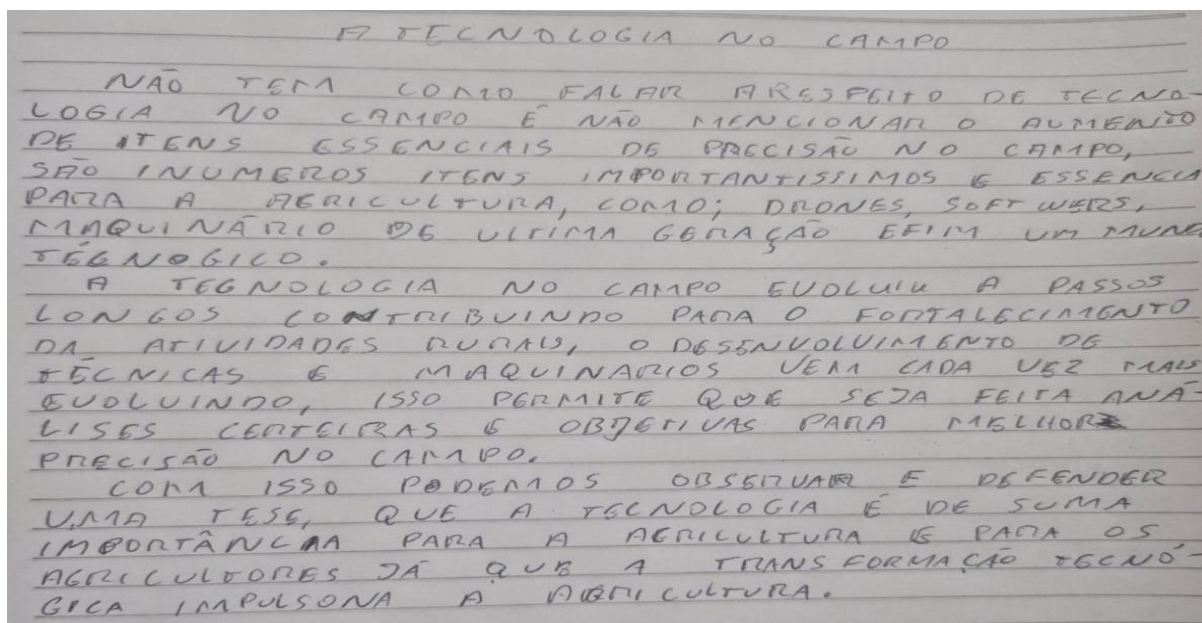 A TECNOLOGIA NO CAMPO
NÃO TEM COMO FALAR ARESPEITO DE TECNO-
LOGIA NO CAMPO É NÃO MENCIONAR O AUMENTO
DE ITENS ESSENCIAIS DE PRECISÃO NO CAMPO,
SÃO INUMEROS ITENS IMPORTANTISSIMOS E ESSENCIA
PARA A AGRICULTURA, COMO; DRONES, SOFT WERS,
MAQUINÁRIO DE ULTIMA GERAÇÃO EFIM UM MUND
TÉGNOGICO.
A TEGNOLOGIA NO CAMPO EVOLUIU A PASSOS
LONGOS CONTRIBUINDO PARA O FORTALECIMENTO
DA ATIVIDADES RURAIS, O DESENVOLVIMENTO DE
TÉCNICAS E MAQUINARIOS VEM CADA VEZ MAIS
EVOLUINDO, ISSO PERMITE QUE SEJA FEITA ANÁ-
LISES CERTEIRAS E OBJETIVAS PARA MELHOR
PRECISÃO NO CAMPO.
COM ISSO PODEMOS OBSERVAR E DEFENDER
UMA TESE, QUE A TECNOLOGIA É DE SUMA
IMPORTÂNCIA PARA A AGRICULTURA E PARA OS
AGRICULTORES JÁ QUE A TRANSFORMAÇÃO TECNÓ-
GICA IMPULSONA A AGRICULTURA.